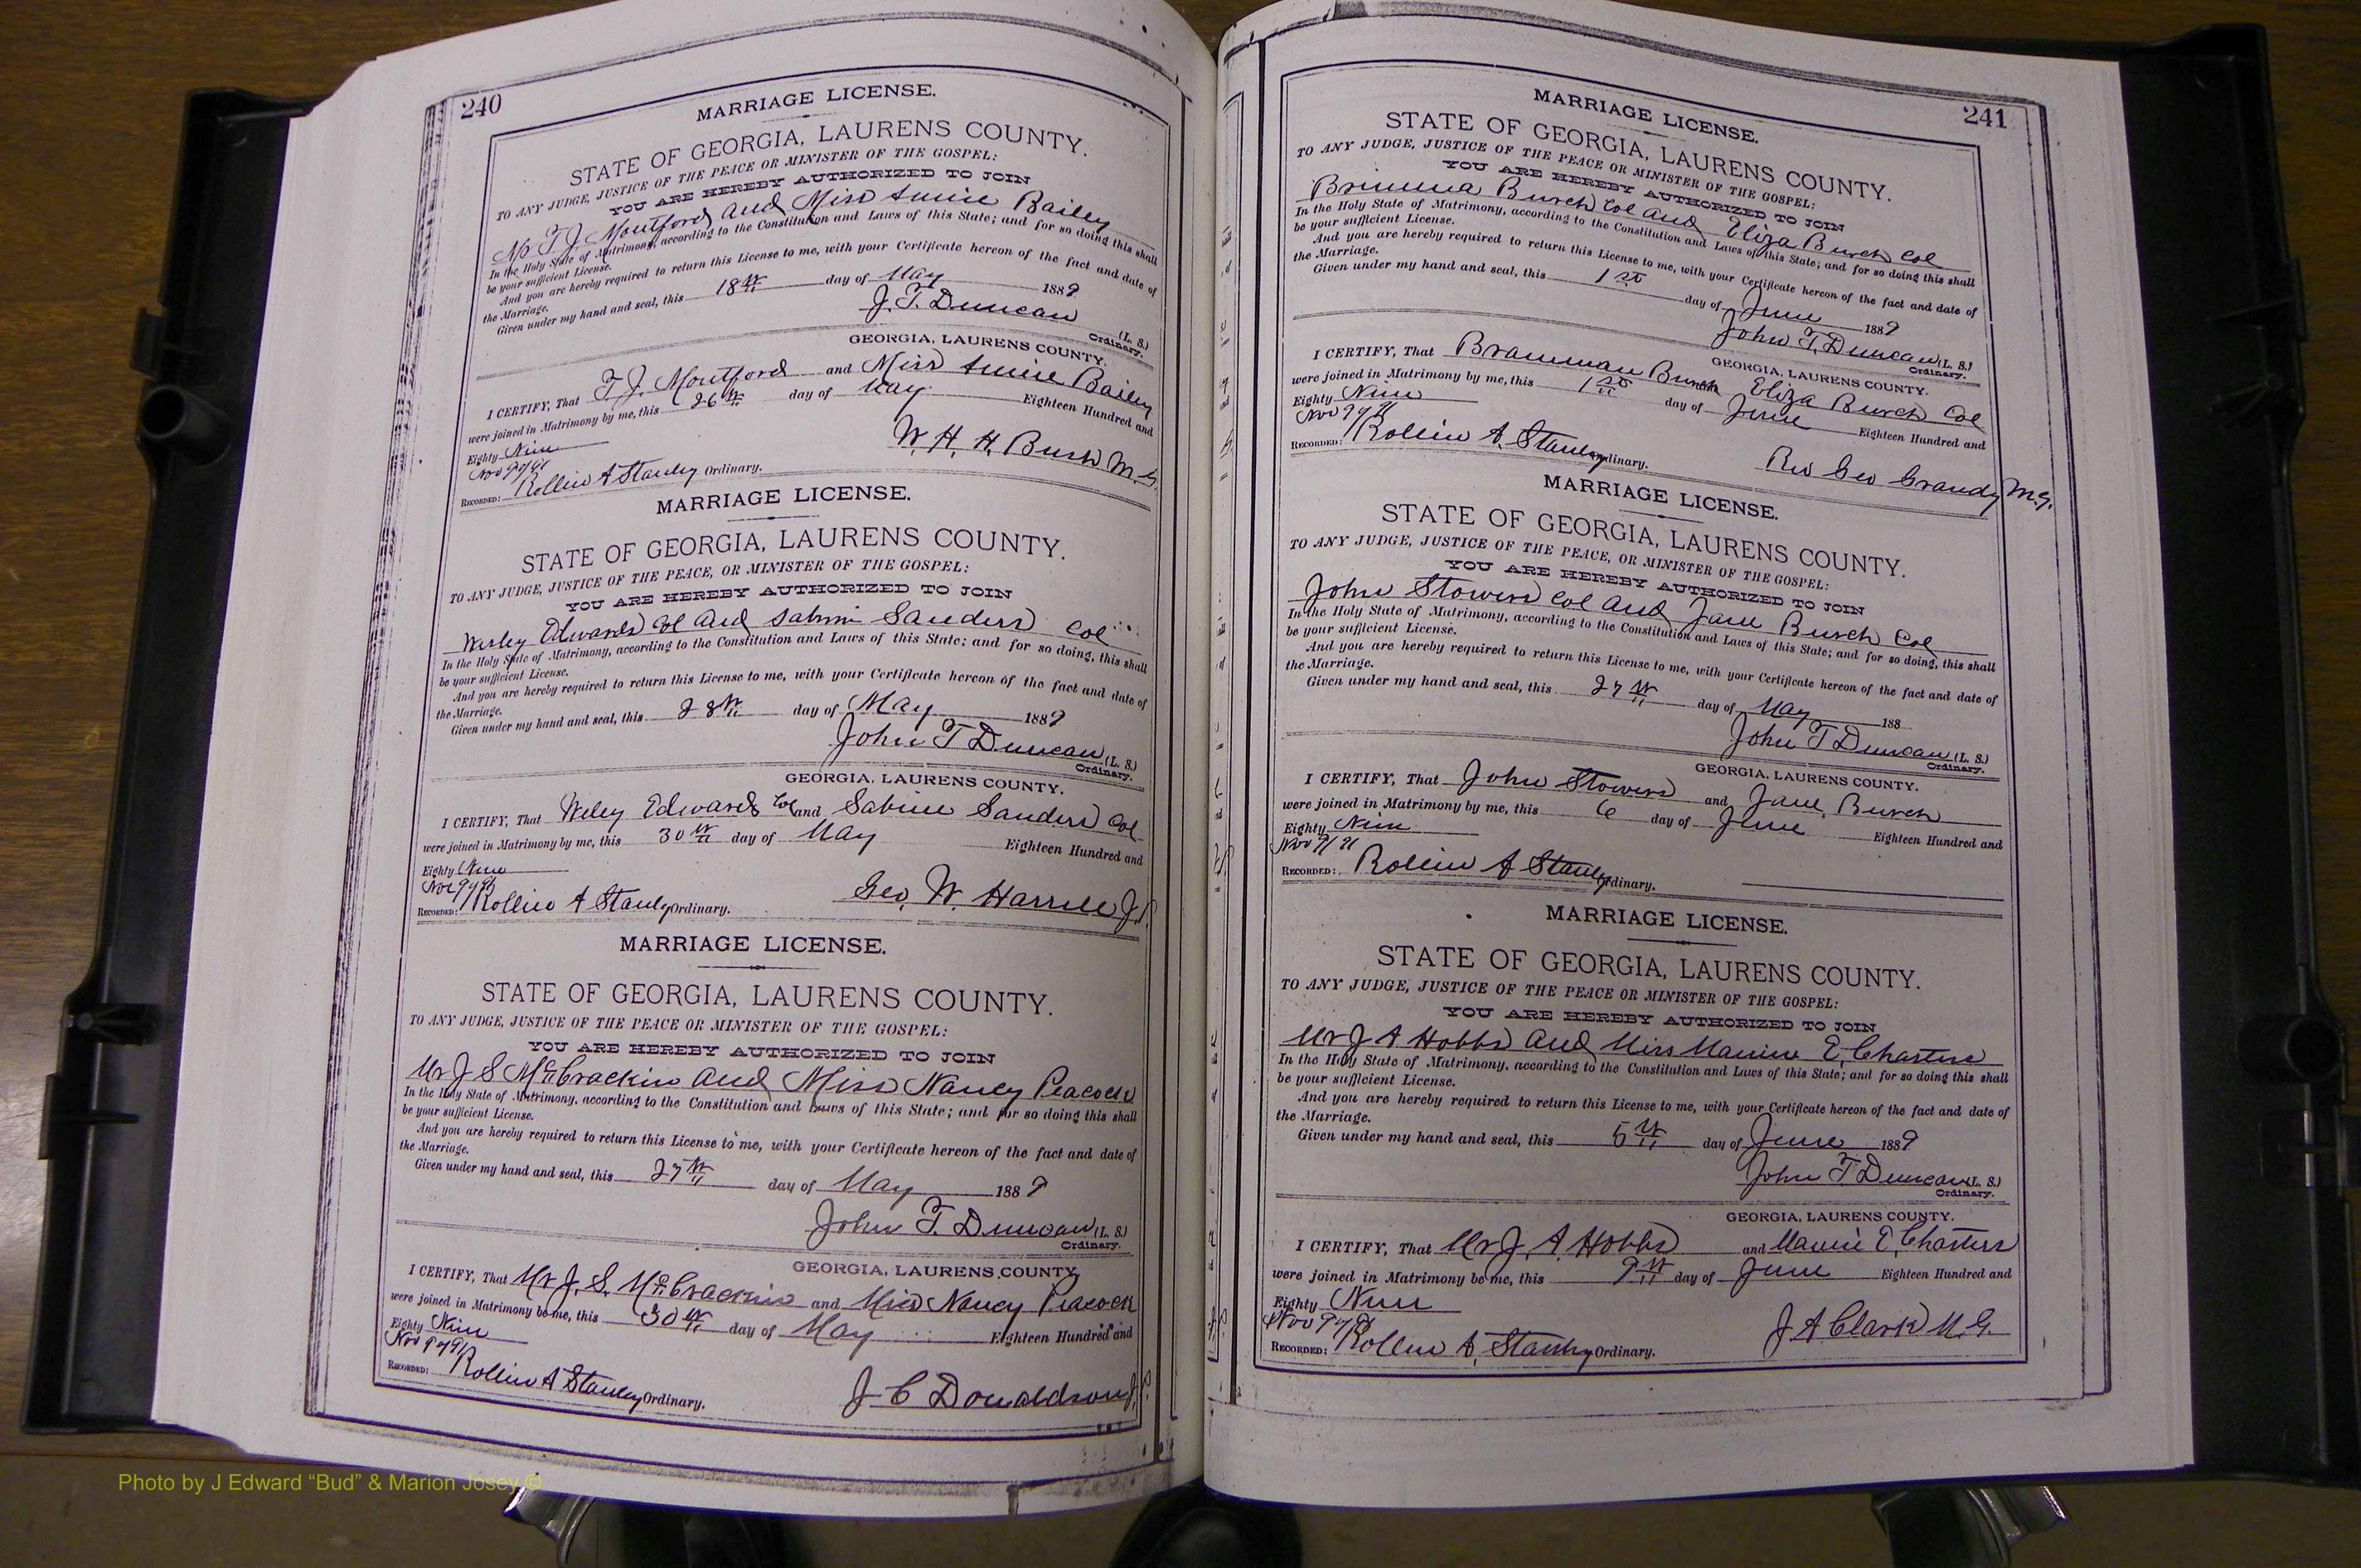 240
MARRIAGE LICENSE.
STATE OF GEORGIA, LAURENS COUNTY.
TO ANY JUDGE, JUSTICE OF THE PEACE OR MINISTER OF THE GOSPEL:
YOU ARE HEREBY AUTHORIZED TO JOIN
T. J. Montford and Miss Annie Bailey
In the Holy State of Matrimony, according to the Constitution and Laws of this State; and for so doing this shall
be your sufficient License.
And you are hereby required to return this License to me, with your Certificate hereon of the fact and date of
the Marriage.
Given under my hand and seal, this 18th day of May 1889
J. T. Duncan (L. S.)
Ordinary.
GEORGIA, LAURENS COUNTY.
I CERTIFY, That T. J. Montford and Miss Annie Bailey
were joined in Matrimony by me, this 26th day of May Eighteen Hundred and
Eighty Nine
W. H. H. Bush M.G.
Nov 9/91
RECORDED: Rollin A Stanley Ordinary.
MARRIAGE LICENSE.
STATE OF GEORGIA, LAURENS COUNTY.
TO ANY JUDGE, JUSTICE OF THE PEACE, OR MINISTER OF THE GOSPEL:
YOU ARE HEREBY AUTHORIZED TO JOIN
Wesley Edwards Col and Sabine Sanders Col
In the Holy State of Matrimony, according to the Constitution and Laws of this State; and for so doing, this shall
be your sufficient License.
And you are hereby required to return this License to me, with your Certificate hereon of the fact and date of
the Marriage.
Given under my hand and seal, this 28th day of May 1889
John T Duncan (L. S.)
Ordinary.
GEORGIA, LAURENS COUNTY.
I CERTIFY, That Wesley Edwards Col and Sabine Sanders Col
were joined in Matrimony by me, this 30th day of May Eighteen Hundred and
Eighty Nine
Nov 9/91
RECORDED: Rollin A Stanley Ordinary. Geo. W. Harrell J.P.
MARRIAGE LICENSE.
STATE OF GEORGIA, LAURENS COUNTY.
TO ANY JUDGE, JUSTICE OF THE PEACE OR MINISTER OF THE GOSPEL:
YOU ARE HEREBY AUTHORIZED TO JOIN
Mr J S McCrackin and Miss Nancy Peacock
In the Holy State of Matrimony, according to the Constitution and Laws of this State; and for so doing this shall
be your sufficient License.
And you are hereby required to return this License to me, with your Certificate hereon of the fact and date of
the Marriage.
Given under my hand and seal, this 27th day of May 1889
John T. Duncan (L. S.)
Ordinary.
GEORGIA, LAURENS COUNTY
I CERTIFY, That Mr J. S. McCrackin and Miss Nancy Peacock
were joined in Matrimony be me, this 30th day of May Eighteen Hundred and
Eighty Nine
Nov 9/91
RECORDED: Rollin A Stanley Ordinary. J C Donaldson J.P.
241
MARRIAGE LICENSE.
STATE OF GEORGIA, LAURENS COUNTY.
TO ANY JUDGE, JUSTICE OF THE PEACE OR MINISTER OF THE GOSPEL:
YOU ARE HEREBY AUTHORIZED TO JOIN
Burch Col and Eliza Burch Col
In the Holy State of Matrimony, according to the Constitution and Laws of this State; and for so doing this shall
be your sufficient License.
And you are hereby required to return this License to me, with your Certificate hereon of the fact and date of
the Marriage.
Given under my hand and seal, this 1st day of June 1889
John T. Duncan (L. S.)
Ordinary.
GEORGIA, LAURENS COUNTY.
I CERTIFY, That Bramman Burch Eliza Burch Col
were joined in Matrimony by me, this 1st day of June Eighteen Hundred and
Eighty Nine
Nov 9/91
RECORDED: Rollin A. Stanley Ordinary. Rev Geo Grandy M.G.
MARRIAGE LICENSE.
STATE OF GEORGIA, LAURENS COUNTY.
TO ANY JUDGE, JUSTICE OF THE PEACE, OR MINISTER OF THE GOSPEL:
YOU ARE HEREBY AUTHORIZED TO JOIN
John Stowers Col and Jane Burch Col
In the Holy State of Matrimony, according to the Constitution and Laws of this State; and for so doing, this shall
be your sufficient License.
And you are hereby required to return this License to me, with your Certificate hereon of the fact and date of
the Marriage.
Given under my hand and seal, this 27th day of May 188
John T Duncan (L. S.)
Ordinary.
GEORGIA, LAURENS COUNTY.
I CERTIFY, That John Stowers and Jane Burch
were joined in Matrimony by me, this 6 day of June Eighteen Hundred and
Eighty Nine
Nov 9/91
RECORDED: Rollin A Stanley Ordinary.
MARRIAGE LICENSE.
STATE OF GEORGIA, LAURENS COUNTY.
TO ANY JUDGE, JUSTICE OF THE PEACE OR MINISTER OF THE GOSPEL:
YOU ARE HEREBY AUTHORIZED TO JOIN
Mr J A Hobbs and Miss Mamie E. Charters
In the Holy State of Matrimony, according to the Constitution and Laws of this State; and for so doing this shall
be your sufficient License.
And you are hereby required to return this License to me, with your Certificate hereon of the fact and date of
the Marriage.
Given under my hand and seal, this 5th day of June 1889
John T Duncan (L. S.)
Ordinary.
GEORGIA, LAURENS COUNTY.
I CERTIFY, That Mr J. A. Hobbs and Mamie E. Charters
were joined in Matrimony be me, this 9th day of June Eighteen Hundred and
Eighty Nine
Nov 9/91
RECORDED: Rollin A, Stanley Ordinary. J A Clark M.G.
Photo by J Edward “Bud” & Marion Josey ©